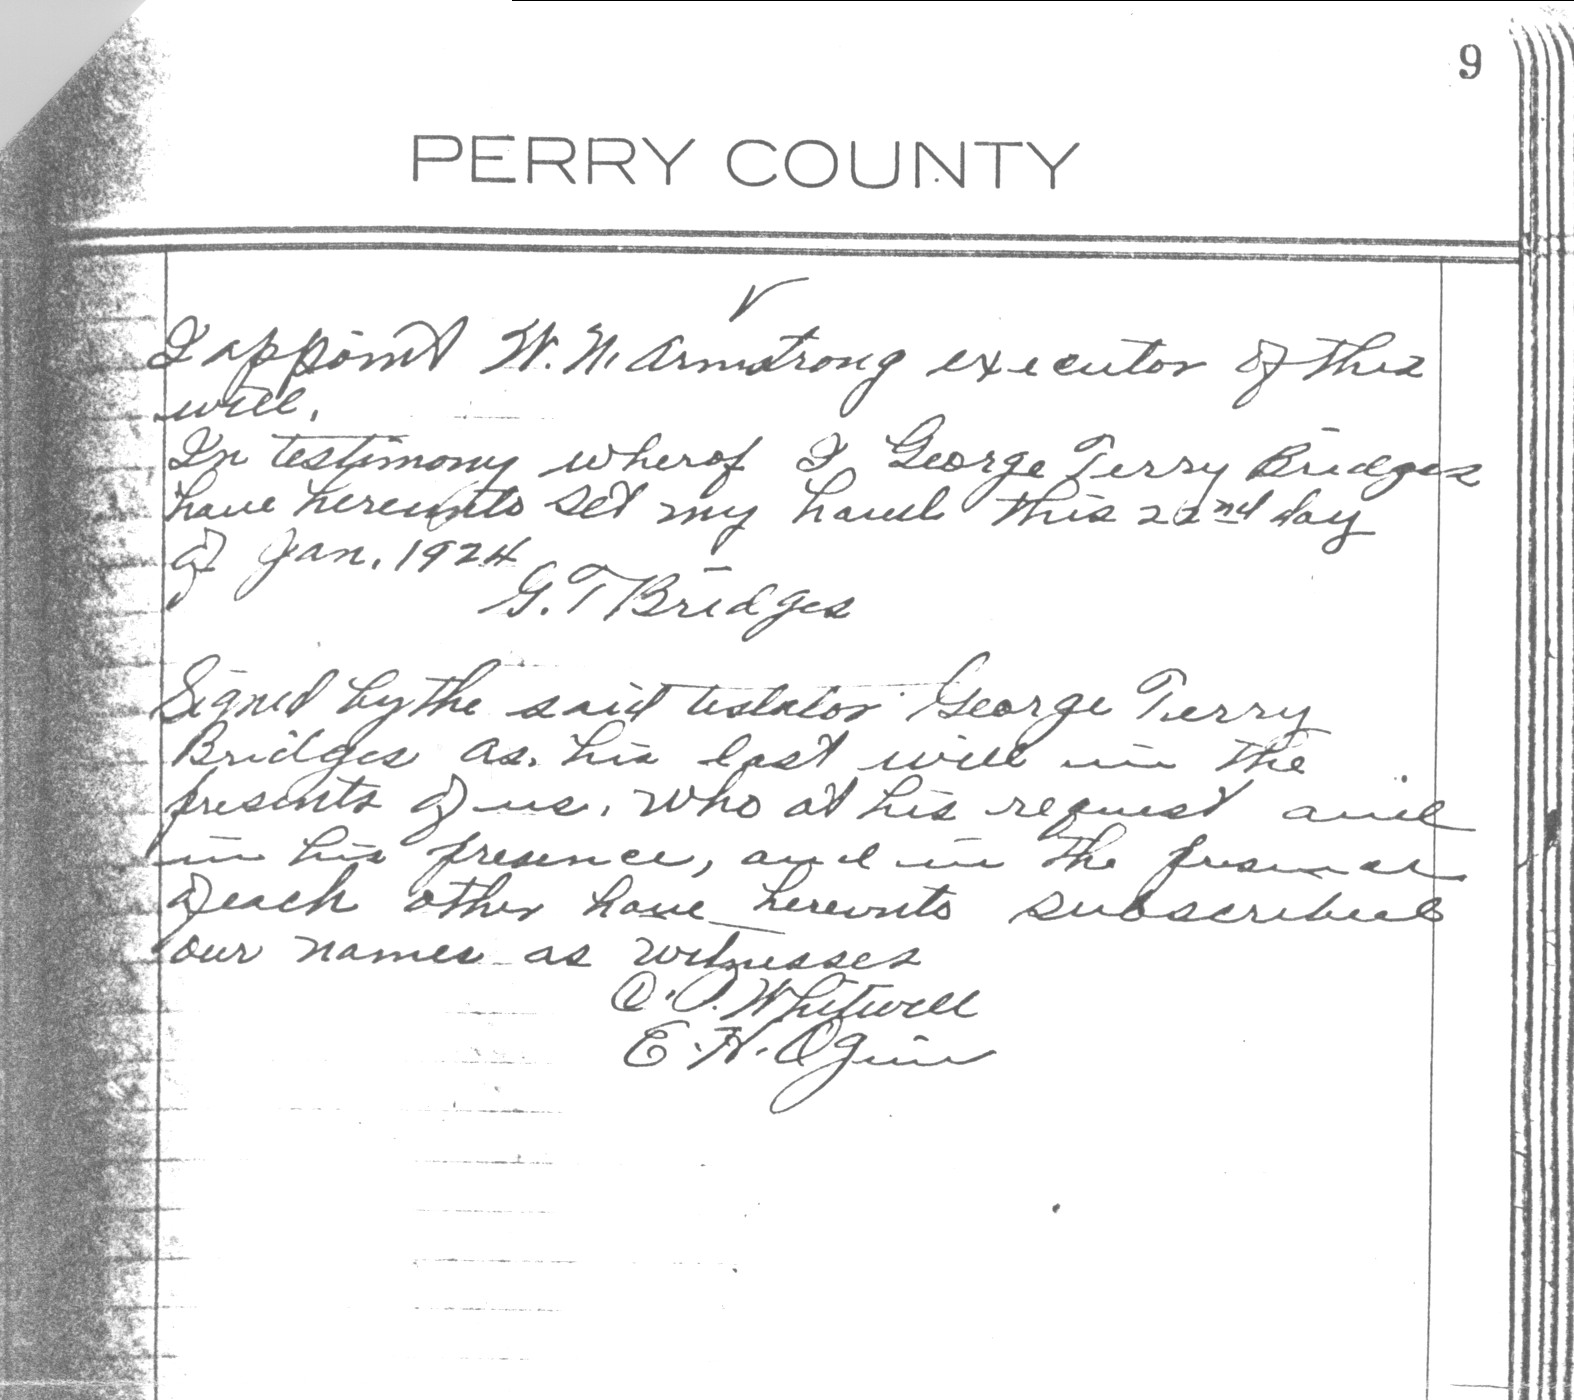 9
PERRY COUNTY
I appoint W. N. Armstrong executor of this
will.
In testimony wherof I George Terry Bridges
have hereunto set my hand this 22nd day
of Jan. 1924
G. T Bridges
Signed by the said testator George Terry
Bridges as his last will in the
presents of us. Who at his request and
in his presence, and in the presence
of each other have hereunto subscribed
our names as witnesses
Whitwell
E. H. O Guin